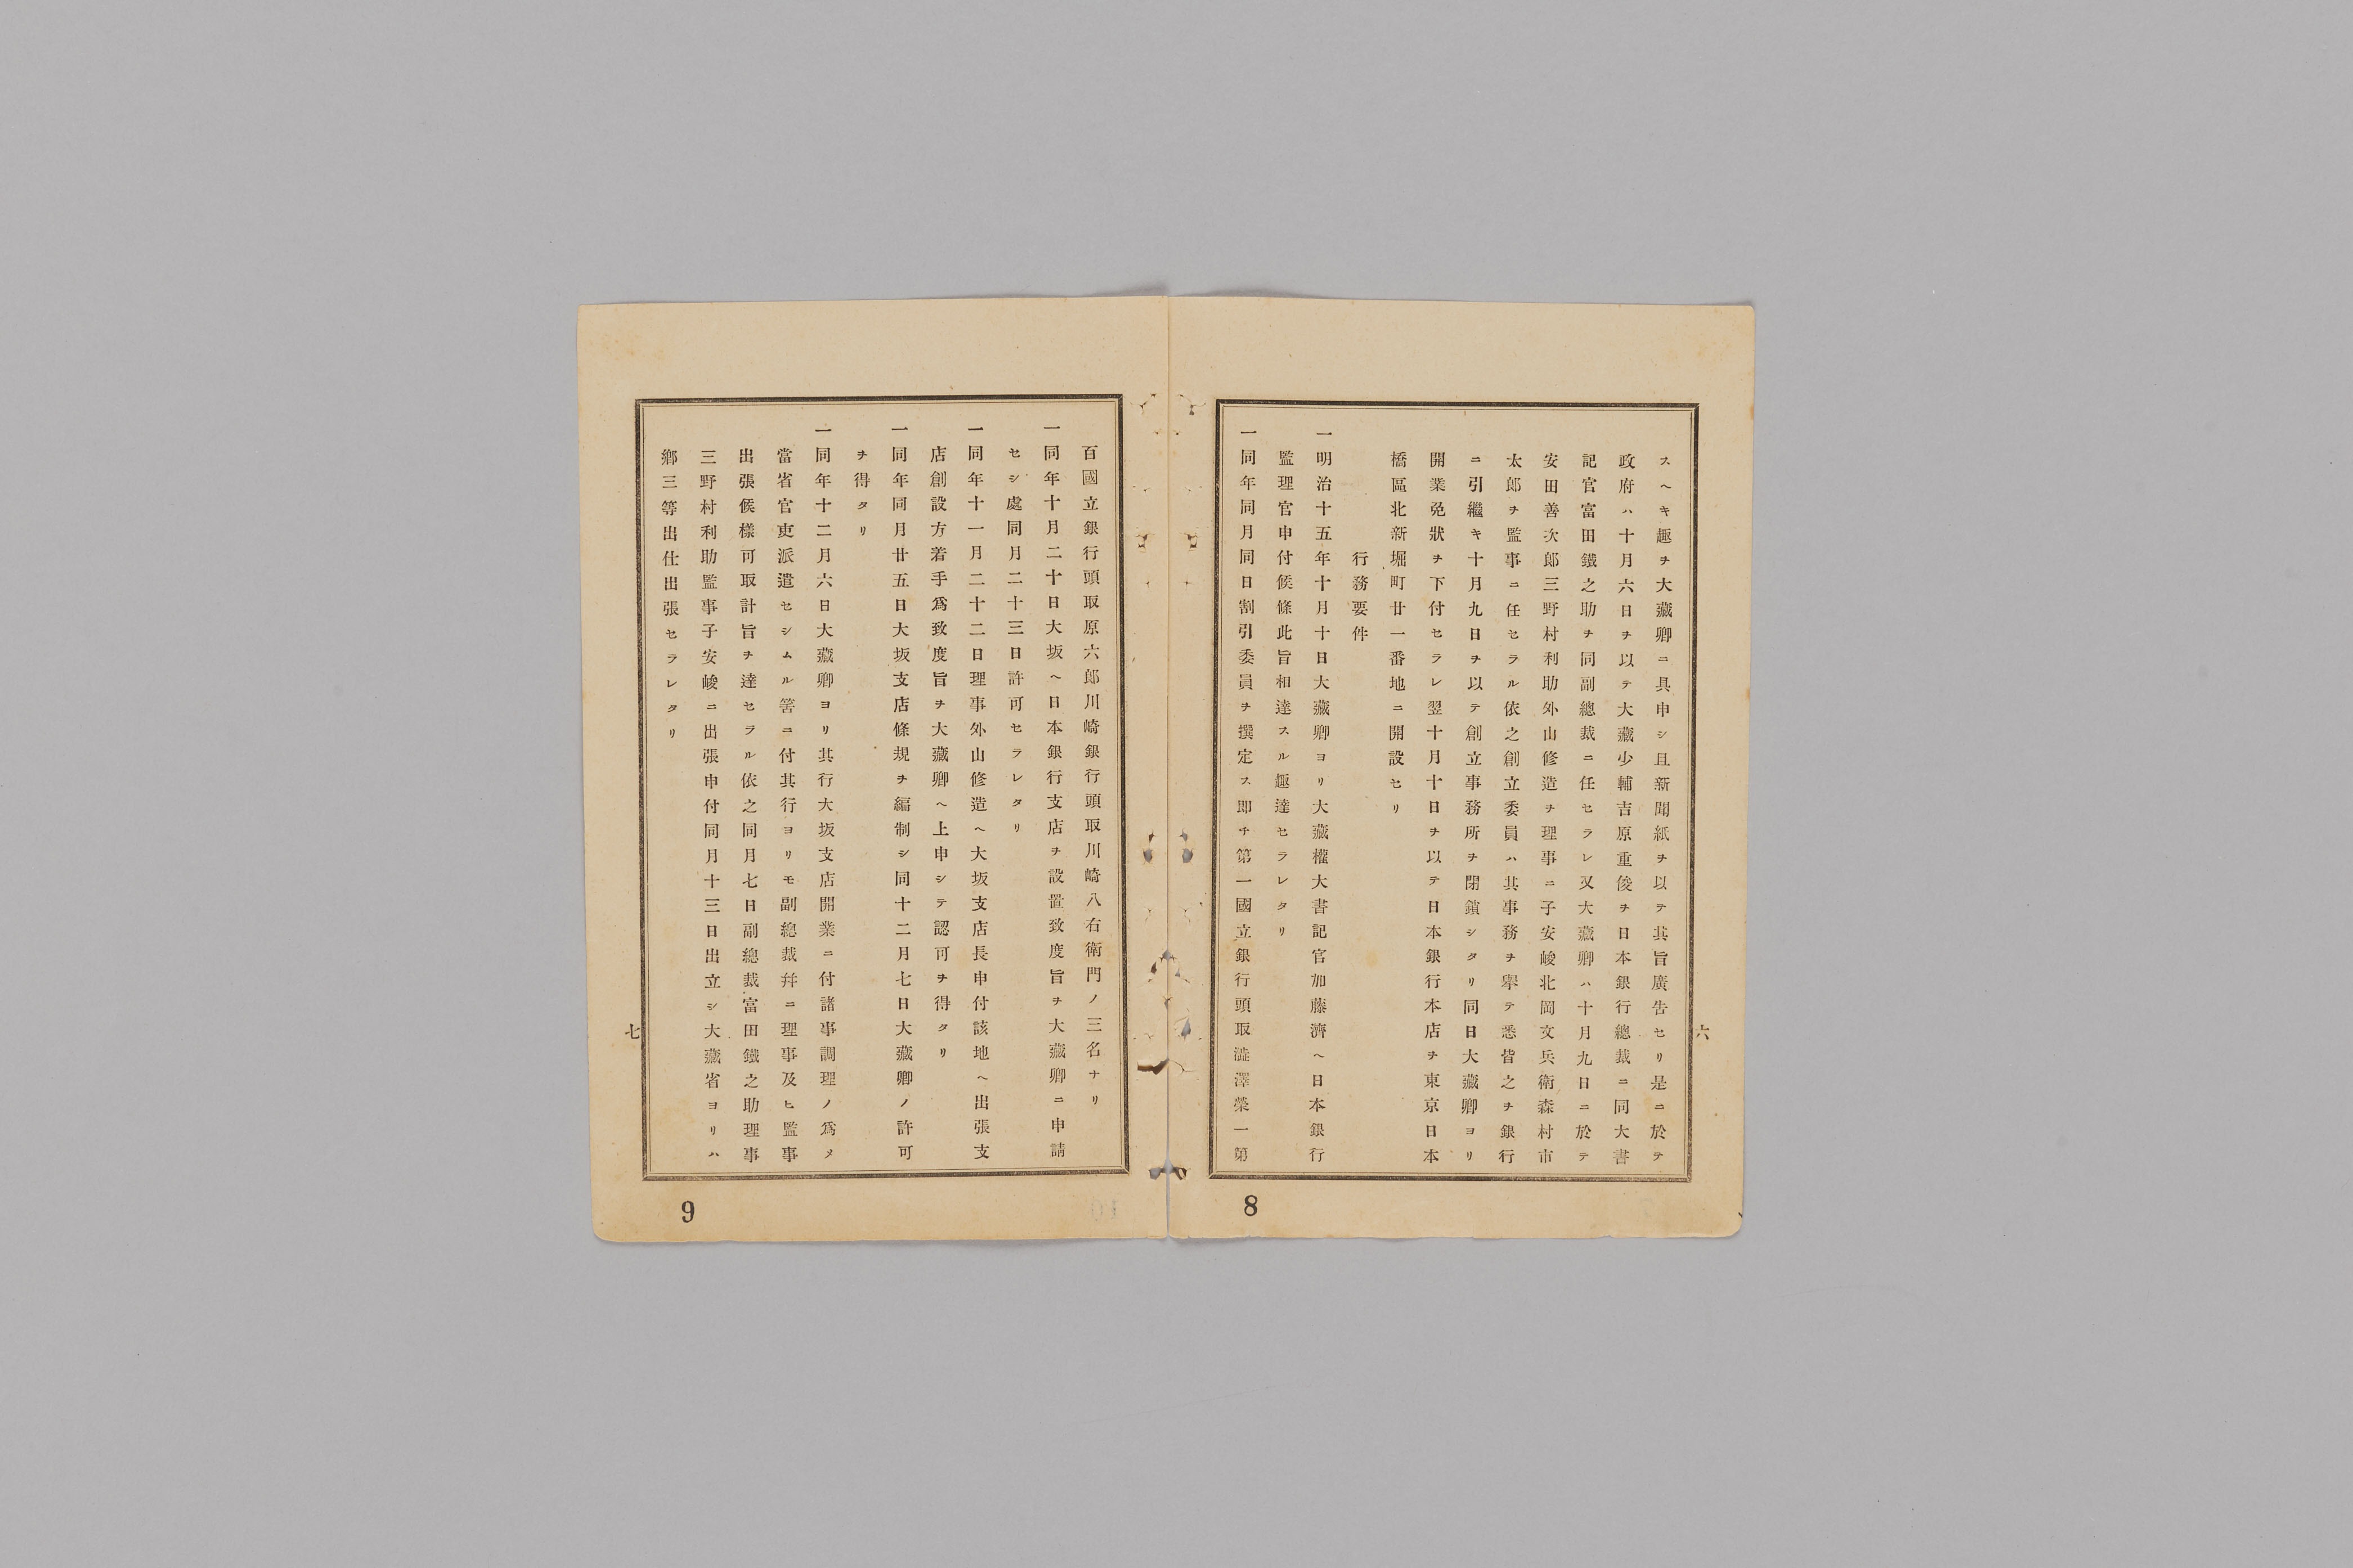 スヘキ趣ヲ大藏卿ニ具申シ且新聞紙ヲ以テ其旨廣告セリ是ニ於テ
政府ハ十月六日ヲ以テ大藏少輔吉原重俊ヲ日本銀行總裁ニ同大書
記官富田鐵之助ヲ同副總裁ニ任セラレ又大藏卿ハ十月九日ニ於テ
安田善次郎三野村利助外山修造ヲ理事ニ子安峻北岡文兵衛森村市
太郎ヲ監事ニ任セラル依之創立委員ハ其事務ヲ擧テ悉皆之ヲ銀行
ニ引繼キ十月九日ヲ以テ創立事務所ヲ閉鎖シタリ同日大藏卿ヨリ
開業免狀ヲ下付セラレ翌十月十日ヲ以テ日本銀行本店ヲ東京日本
橋區北新堀町廿一番地ニ開設セリ
行務要件
一明治十五年十月十日大藏卿ヨリ大藏權大書記官加藤濟ヘ日本銀行
監理官申付候條此旨相達スル趣達セラレタリ
一同年同月同日割引委員ヲ撰定ス即チ第一國立銀行頭取澁澤榮一第
六
8
百國立銀行頭取原六郎川崎銀行頭取川崎八右衛門ノ三名ナリ
一同年十月二十日大坂ヘ日本銀行支店ヲ設置致度旨ヲ大藏卿ニ申請
セシ處同月二十三日許可セラレタリ
一同年十一月二十二日理事外山修造ヘ大坂支店長申付該地ヘ出張支
店創設方着手爲致度旨ヲ大藏卿ヘ上申シテ認可ヲ得タリ
一同年同月廿五日大坂支店條規ヲ編制シ同十二月七日大藏卿ノ許可
ヲ得タリ
一同年十二月六日大藏卿ヨリ其行大坂支店開業ニ付諸事調理ノ爲メ
當省官吏派遣セシムル筈ニ付其行ヨリモ副總裁幷ニ理事及ヒ監事
出張候樣可取計旨ヲ達セラル依之同月七日副總裁富田鐵之助理事
三野村利助監事子安峻ニ出張申付同月十三日出立シ大藏省ヨリハ
鄕三等出仕出張セラレタリ
七
9